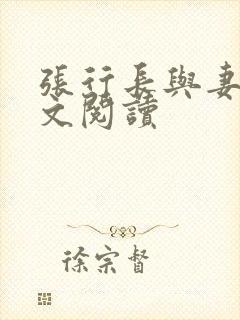 張行長與妻
文閱讀
徐宗督